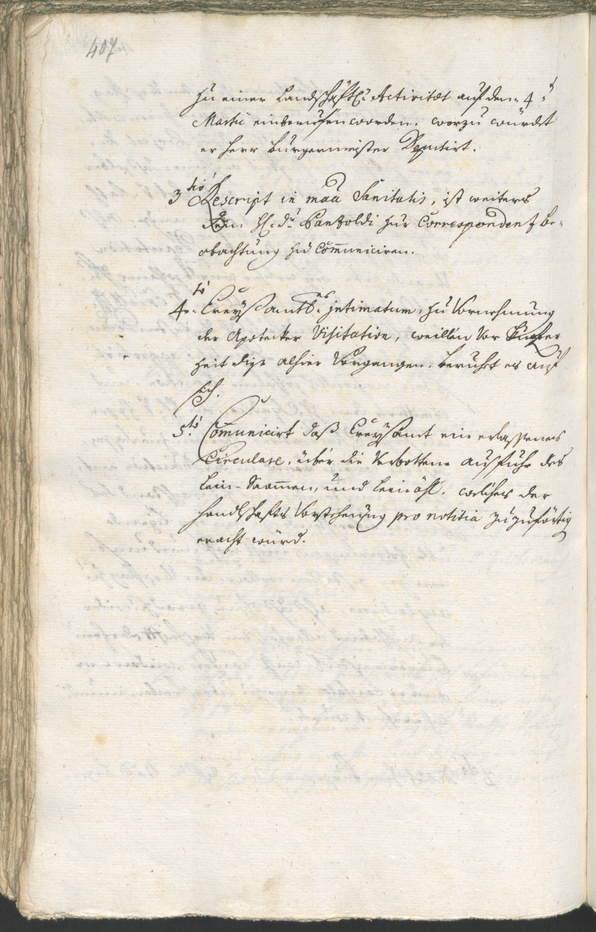 407
zu einer Landschäftl: Activitæt auf den 4t
Martii einberuffen worden. worzu würdt
er Herr Burgermeister Deputirt.
3tio Rescript in maa Sanitatis, ist weiters
dem H: Dr: zur Correspondenz be-
obachtung zu Com̄uniciren.
4to Creÿßambts intimatum, zu Vornehmung
der Apotecker Visitation, weillen vor
heit dise alhier Vorgangen, beruhet es auf
sich.
5to Com̄unicirt daß Creÿßamt ein erlassenes
Circulare, über die Verbottene ausfuhr des
Lein-Saamen, und Leinöhl. welches der
Landschafts Vorstehung pro notitia zuzuförtig
eracht würd.